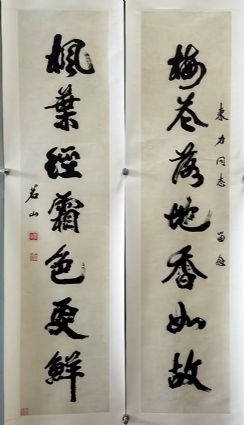 梅花落地香如故
東力同志 留念
楓葉經霜色更鮮
若山